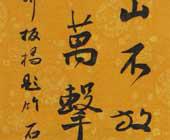 山不放
萬擊
板橋題竹石